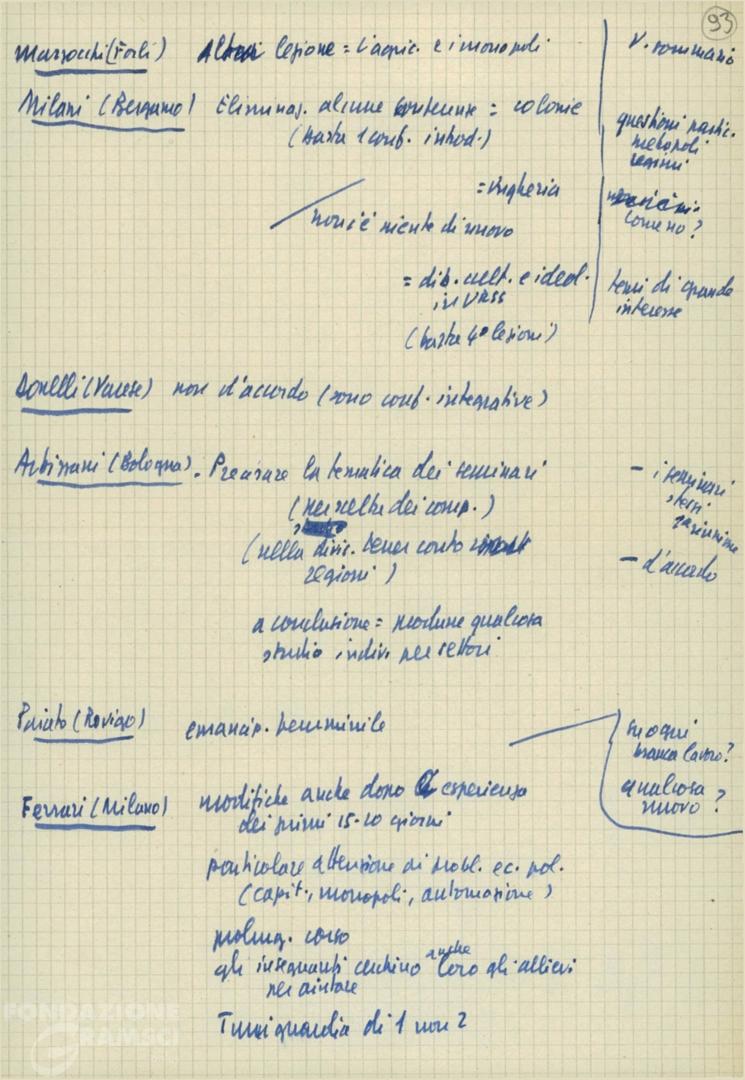 93
Marzocchi (Forlì) Altra lezione = l'agric. e i monopoli
V. sommario
Milani (Bergamo) Eliminaz. alcune conferenze = colonie
(basta 1 conf. introd.)
questioni partic.
metropoli
regimi
= Ungheria
non c'è niente di nuovo
come no?
= dib. cult. e ideol.
in URSS
(basta 4° lezioni)
temi di grande
interesse
Donelli (Varese) non d'accordo (sono conf. integrative)
Arbizzani (Bologna). Precisare la tematica dei seminari
(per scelta dei comp.)
(nella divis. tener conto
regioni)
– i seminari
stessi
– d'accordo
a conclusione = produrre qualcosa
studio indiv. per settori
(Rovigo) emancip. femminile
su ogni
branca lavoro?
qualcosa
nuovo?
Ferrari (Milano) modifiche anche dopo esperienza
dei primi 15-20 giorni
particolare attenzione ai probl. ec. pol.
(capit., monopoli, automazione)
prolung. corso
gli insegnanti cerchino anche loro gli allievi
per aiutare
Turni guardia di 1 non 2
FONDAZIONE
GRAMSCI